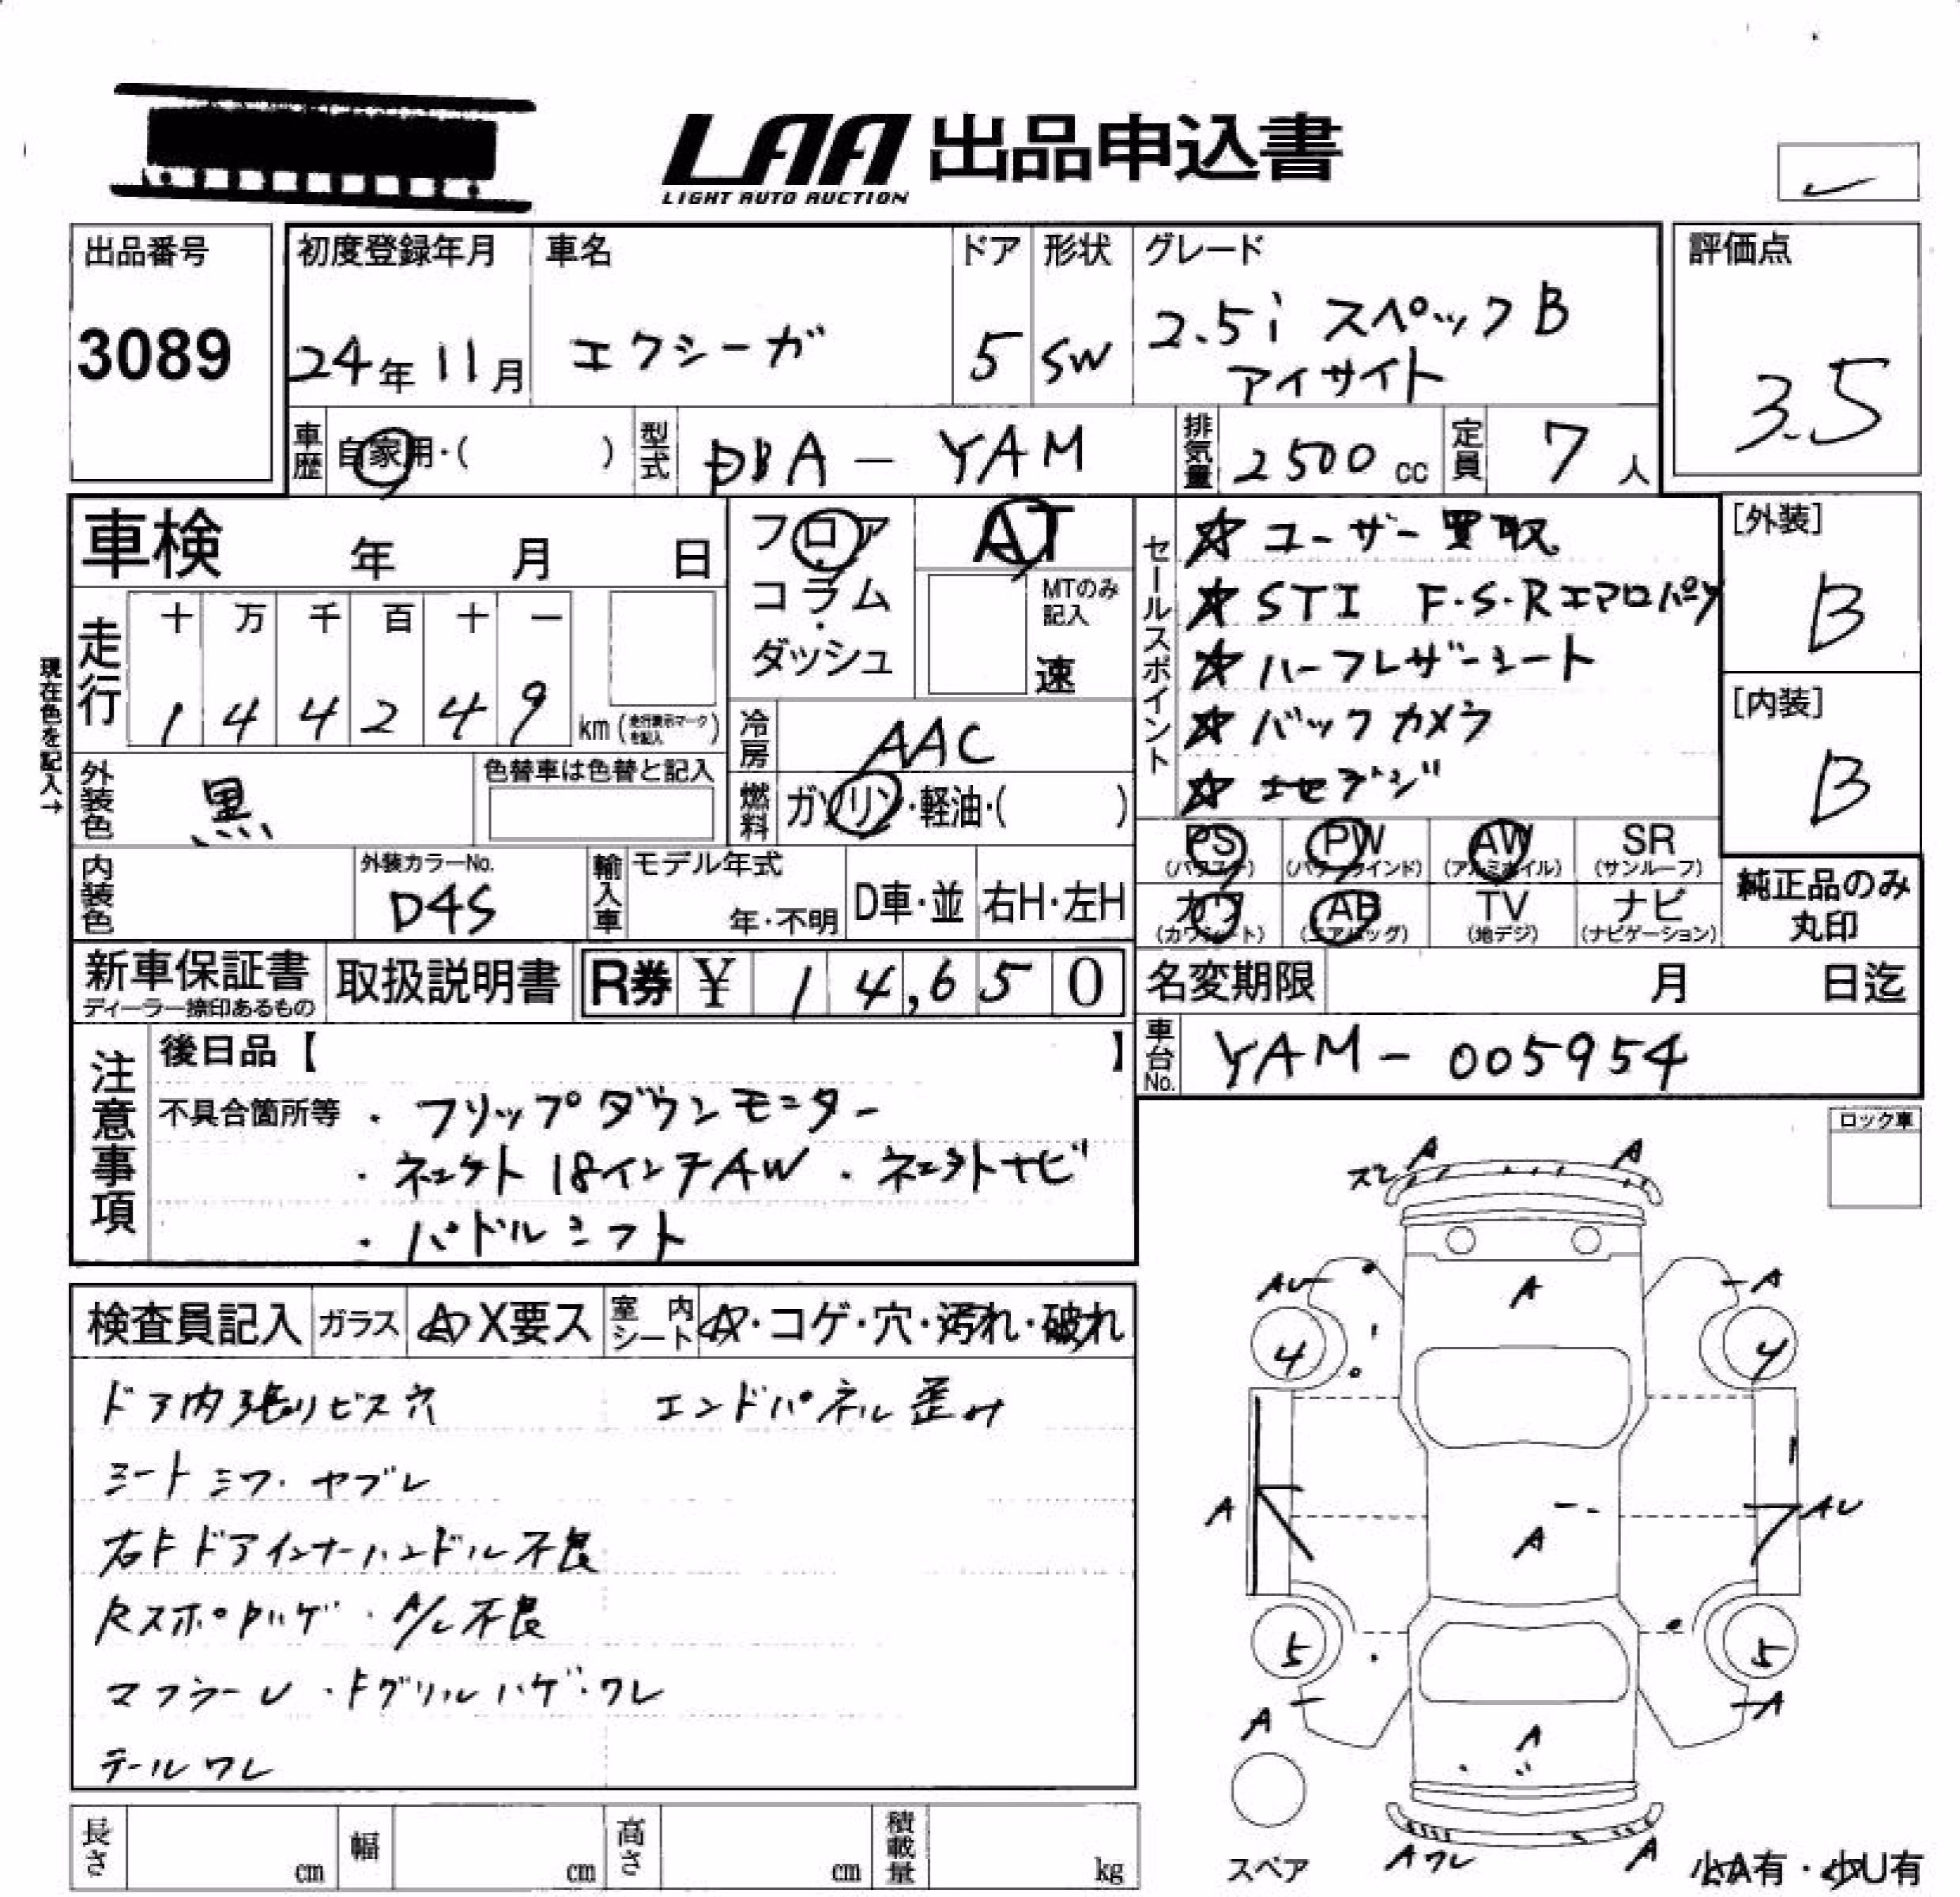 LAA 出品申込書
LIGHT AUTO AUCTION
出品番号
3089
初度登録年月
24年 11月
車名
エクシーガ
ドア
5
形状
SW
グレード
2.5i スペックB
アイサイト
評価点
3.5
車歴
自家用・( )
型式
DBA - YAM
排気量
2500 cc
定員
7 人
車検 年 月 日
フロア
コラム
ダッシュ
AT
MTのみ
記入
速
セールスポイント
☆ ユーザー買取
☆ STI F・S・Rエアロパーツ
☆ ハーフレザーシート
☆ バックカメラ
[外装]
B
[内装]
B
現在色を記入→
走行
十 万 千 百 十 一
1 4 4 2 4 9
km (走行表示マークを記入)
冷房
AAC
外装色
黒
色替車は色替と記入
燃料
ガソリン・軽油・( )
PS
(パワステ)
PW
(パワーウインド)
AW
(アルミホイル)
SR
(サンルーフ)
カワ
(カワシート)
AB
(エアバッグ)
TV
(地デジ)
ナビ
(ナビゲーション)
純正品のみ
丸印
内装色
外装カラーNo.
D4S
輸入車
モデル年式
年・不明
D車・並
右H・左H
新車保証書
ディーラー捺印あるもの
取扱説明書
R券 ¥ 1 4,6 5 0
名変期限 月 日迄
車台No.
YAM - 005954
注意事項
後日品【 】
不具合箇所等 ・フリップダウンモニター
・ネェクト 18インチAW ・ネェクトナビ
・パドルシフト
ロック車
検査員記入
ガラス
A X要ス
室内シート
A・コゲ・穴・汚れ・破れ
ドア内張りビス穴 エンドパネル歪み
シートシワ・ヤブレ
右Fドアインナーハンドル不良
RスポFハゲ・A/C不良
マフラーU・Fグリルハゲ・ワレ
テールワレ
ズレ A A
A
AU A
4 4
A AU
A
5 5
A A
A
スペア
Aワレ A
少A有・少U有
長さ cm
幅 cm
高さ cm
積載量 kg